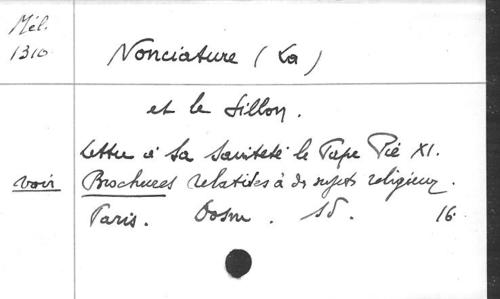 Mél.
1310
Nonciature (La)
et le Sillon.
Lettre à Sa Sainteté le Pape Pie XI.
voir Brochures relatives à des sujets religieux.
Paris. Dosm. sd. 16.